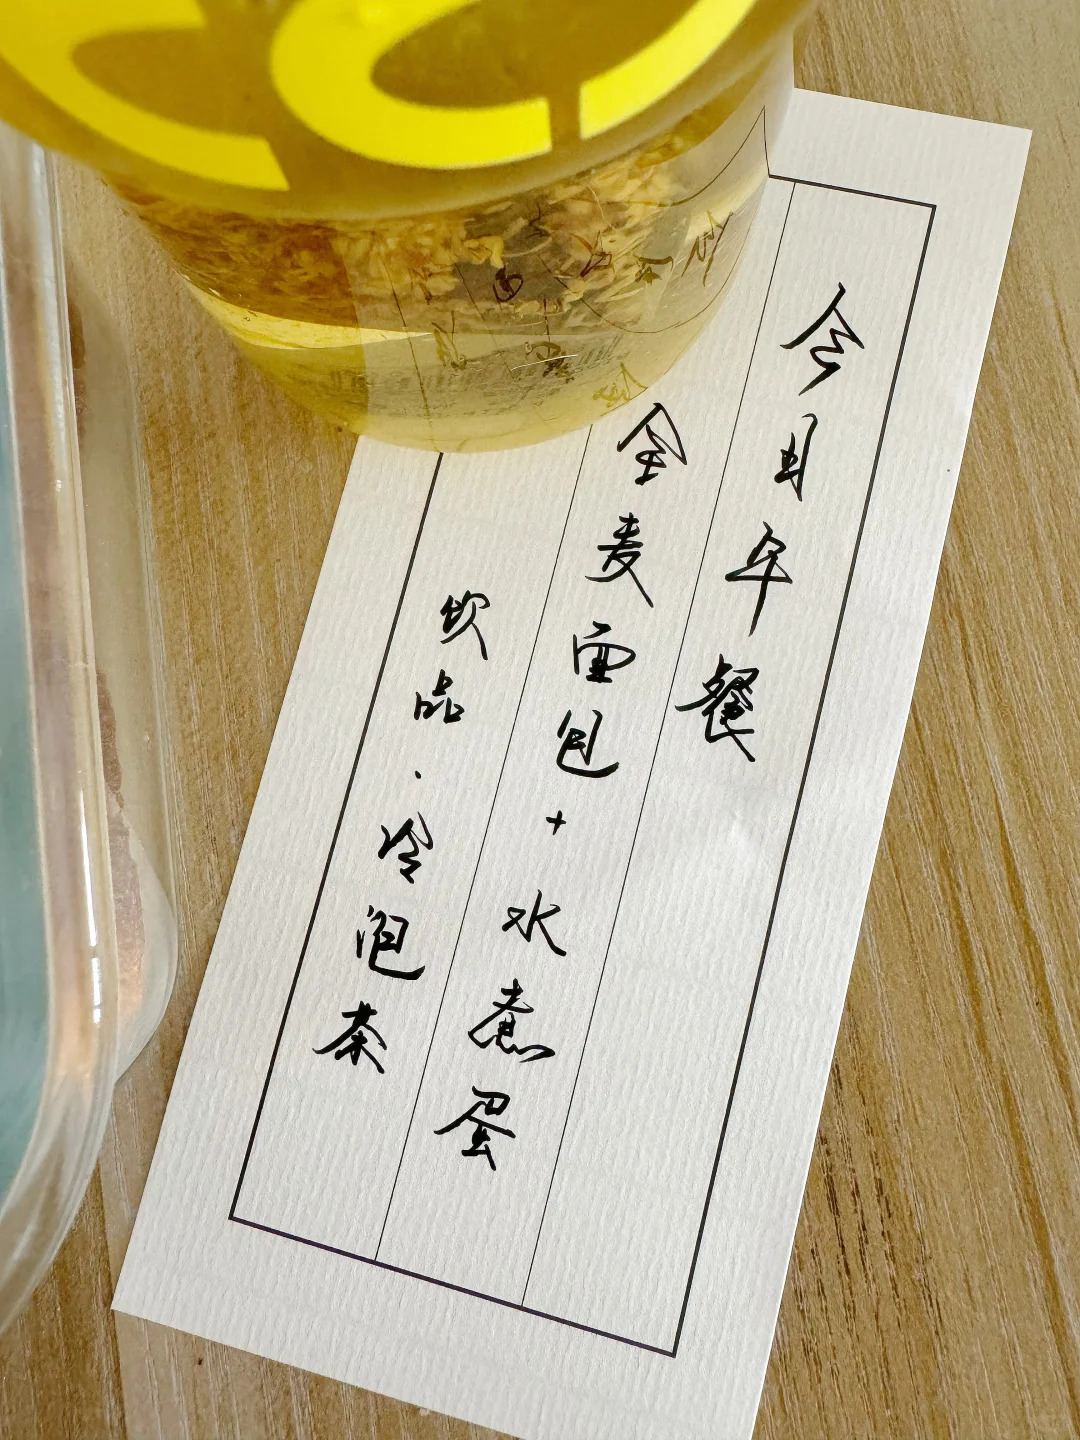 今日午餐
全麦面包+水煮蛋
饮品·冷泡茶